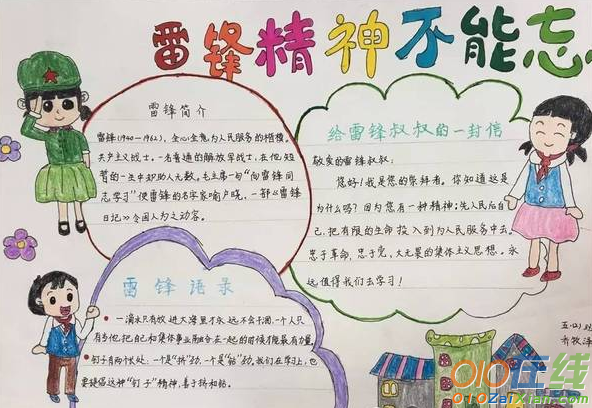 雷锋精神不能忘
雷锋简介
雷锋(1940—1962),全心全意为人民服务的楷模,
共产主义战士。一名普通的解放军战士,在他短
暂的一生中却助人无数。毛主席一句“向雷锋同
志学习”使雷锋的名字家喻户晓,一部《雷锋
日记》令国人为之动容。
给雷锋叔叔的一封信
敬爱的雷锋叔叔:
您好!我是您的崇拜者。你知道这是
为什么吗?因为您有一种精神:先人民后自
己,把有限的生命投入到为人民服务中去。
忠于革命,忠于党,大无畏的集体主义思想。永
远值得我们去学习!
雷锋语录
一滴水只有放进大海里才永远不会干涸,一个人只
有当他把自己和集体事业融合在一起的时候才能最有力量。
钉子有两个长处,一个是“挤”劲,一个是“钻”劲,我们在学习上,也
要提倡这种“钉子”精神,善于挤和钻。
五·(2)班
010在线
010ZaiXian.com